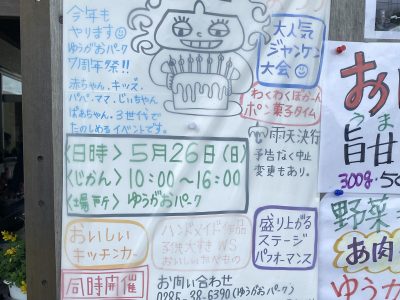 今年も
やります
ゆうがおパーク
7周年祭!!
赤ちゃん、キッズ、
パパ・ママ・じぃちゃん
ばあちゃん。3世代で
たのしめるイベントです。
大人気
ジャンケン
大会
わくわくぽかーん
ポン菓子タイム
雨天決行
予告なく中止
変更もあり。
<日時>5月26日(日)
<じかん>10:00〜16:00
<場所>ゆうがおパーク
おいしい
キッチンカー
ハンドメイド作品
子供大すきWS
おいしいたべもの
盛り上がる
ステージ
パフォーマンス
同時開催
お問い合わせ
0285-38-6390(ゆうがおパーク)
お
うま
旨甘
300g
野菜
お肉
ゆうか